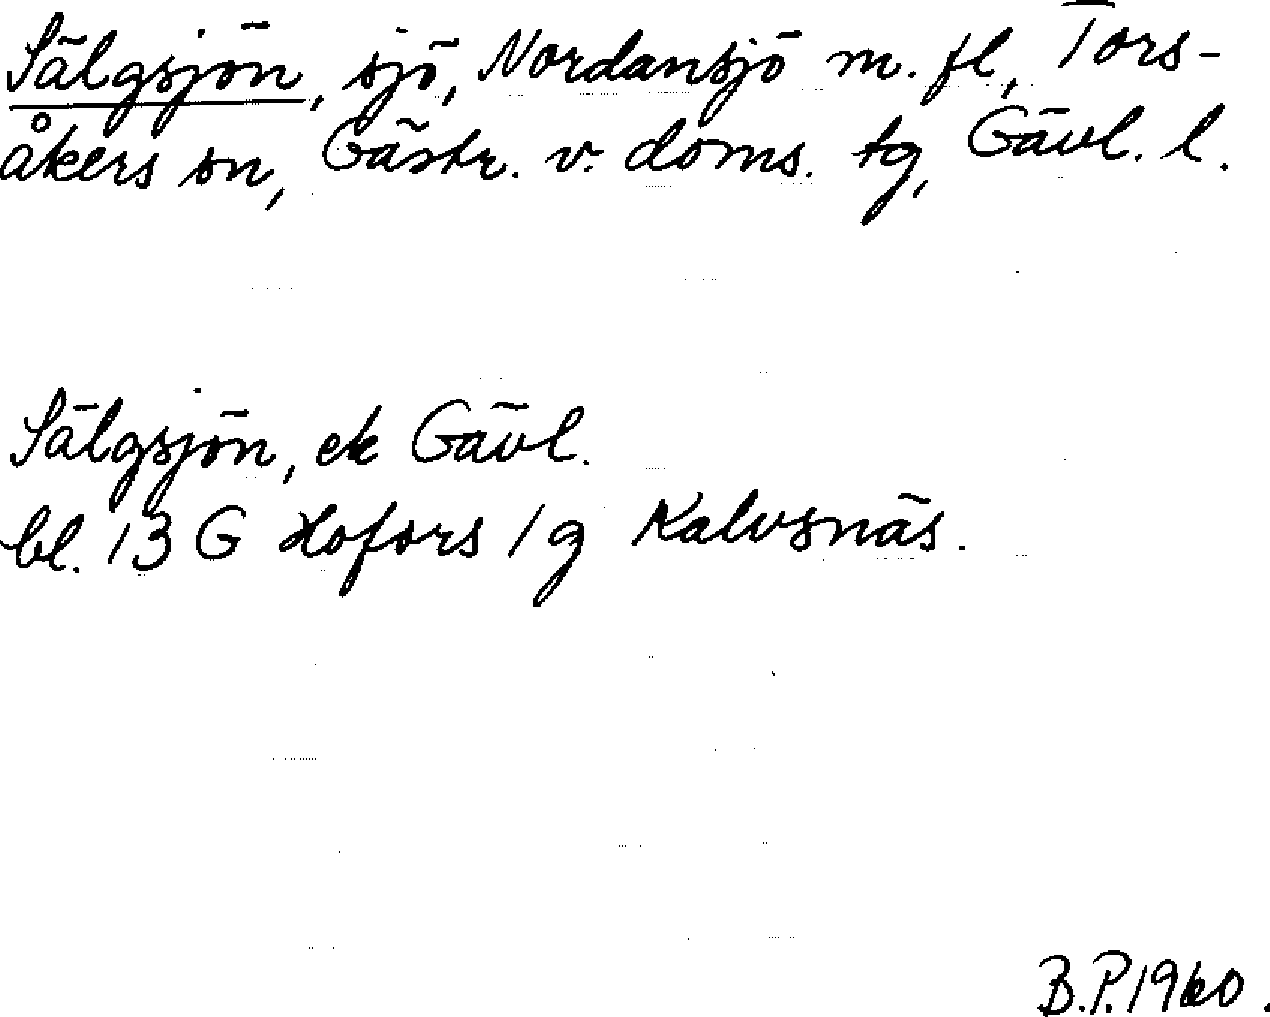 Sälgsjön, sjö, Nordansjö m. fl, Tors-
åkers sn, Gästr. v. doms. tg, Gävl. l.
Sälgsjön, ek Gävl.
bl. 13 G Hofors 1 g Kalvsnäs.
B.P. 1960.